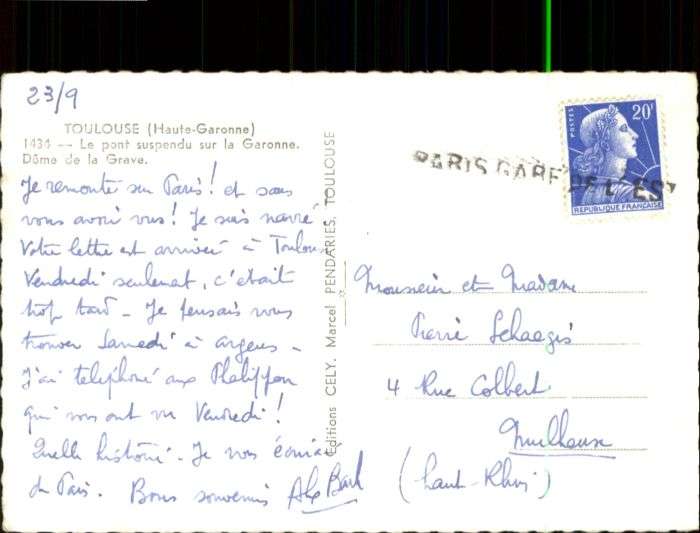 23/9
TOULOUSE (Haute-Garonne)
1434 — Le pont suspendu sur la Garonne.
Dôme de la Grave.
Je remonte sur Paris! et sans
vous avoir vus! Je suis navré
Votre lettre est arrivée à Toulouse
Vendredi seulement, c'était
trop tard - Je pensais vous
trouver Samedi à
J'ai telephoné aux
qui vous ont vu Vendredi!
Quelle histoire - Je vous écrirai
de Paris. Bons souvenirs
Editions CELY. Marcel PENDARIES, TOULOUSE
PARIS GARE DE L'EST
POSTES
20F
REPUBLIQUE FRANÇAISE
Monsieur et Madame
Pierre
4 Rue Colbert
Mulhouse
(haut-Rhin)